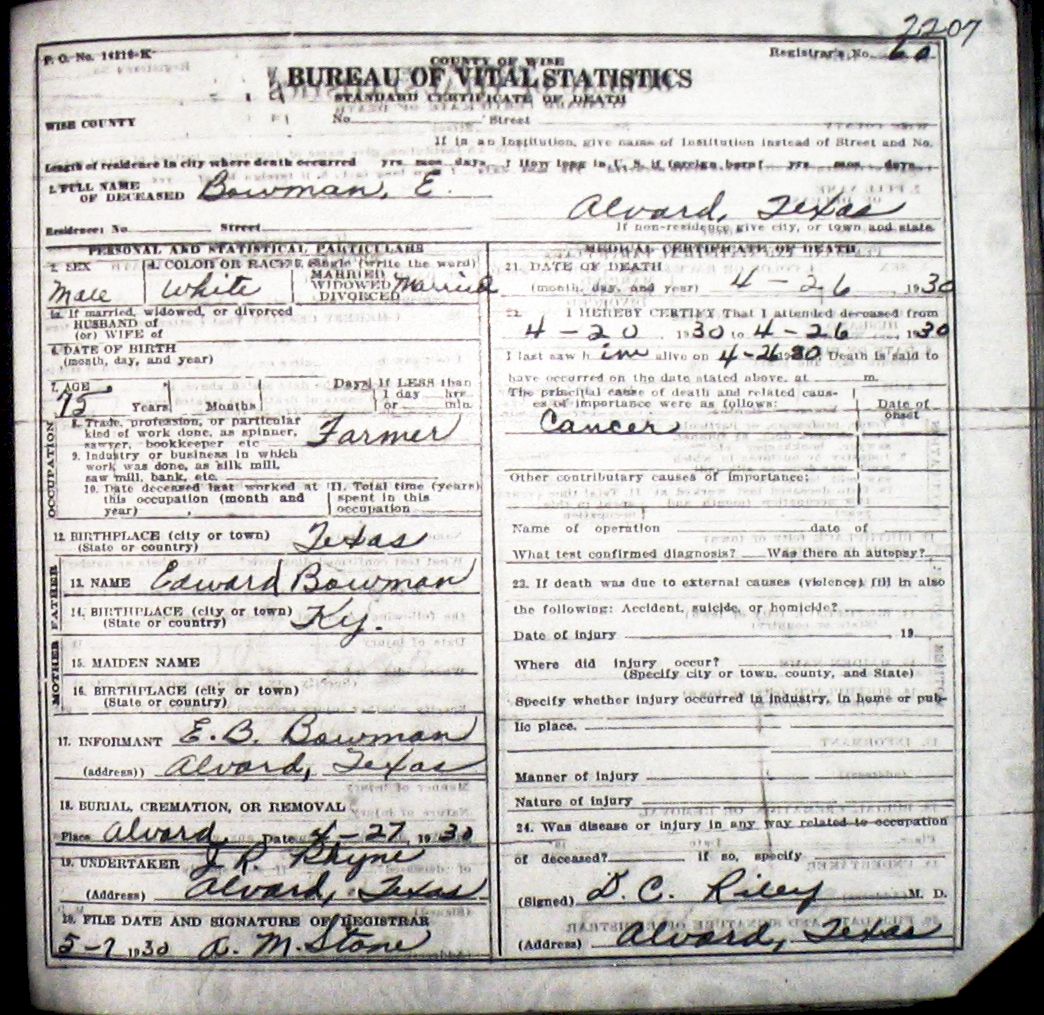 2207
F. O. No. 14218-K
Registrar's No. 60
COUNTY OF WISE
BUREAU OF VITAL STATISTICS
STANDARD CERTIFICATE OF DEATH
WISE COUNTY
No. Street
If in an Institution, give name of Institution instead of Street and No.
Length of residence in city where death occurred yrs. mos. days. How long in U. S. if foreign born? yrs. mos. days.
1. FULL NAME OF DECEASED Bowman, E.
Alvard, Texas
Residence: No. Street
If non-residence give city, or town and state
PERSONAL AND STATISTICAL PARTICULARS
3. SEX Male
4. COLOR OR RACE White
5. Single (write the word) MARRIED WIDOWED DIVORCED Married
5a. If married, widowed, or divorced
HUSBAND of
(or) WIFE of
6. DATE OF BIRTH
(month, day, and year)
7. AGE 75 Years Months Days If LESS than 1 day hrs. or min.
OCCUPATION
8. Trade, profession, or particular kind of work done, as spinner, sawyer, bookkeeper etc Farmer
9. Industry or business in which work was done, as silk mill, saw mill, bank, etc.
10. Date deceased last worked at this occupation (month and year)
11. Total time (years) spent in this occupation
12. BIRTHPLACE (city or town) (State or country) Texas
FATHER
13. NAME Edward Bowman
14. BIRTHPLACE (city or town) (State or country) Ky.
MOTHER
15. MAIDEN NAME
16. BIRTHPLACE (city or town) (State or country)
17. INFORMANT E. B. Bowman
(address)) Alvard, Texas
18. BURIAL, CREMATION, OR REMOVAL
Place Alvard Date 4-27, 1930
19. UNDERTAKER J R Rhyne
(Address) Alvard, Texas
20. FILE DATE AND SIGNATURE OF REGISTRAR
5-7 1930 M. Stone
MEDICAL CERTIFICATE OF DEATH
21. DATE OF DEATH
(month, day, and year) 4-26 1930
22. I HEREBY CERTIFY That I attended deceased from
4-20 1930 to 4-26, 1930
I last saw him alive on 4-26 30 Death is said to
have occurred on the date stated above, at m.
The principal cause of death and related causes of importance were as follows: Date of onset
Cancer
Other contributary causes of importance:
Name of operation date of
What test confirmed diagnosis? Was there an autopsy?
23. If death was due to external causes (violence) fill in also
the following: Accident, suicide, or homicide?
Date of injury 19
Where did injury occur?
(Specify city or town, county, and State)
Specify whether injury occurred in industry, in home or public place.
Manner of injury
Nature of injury
24. Was disease or injury in any way related to occupation
of deceased? If so, specify
(Signed) D. C. Riley M. D.
(Address) Alvard, Texas